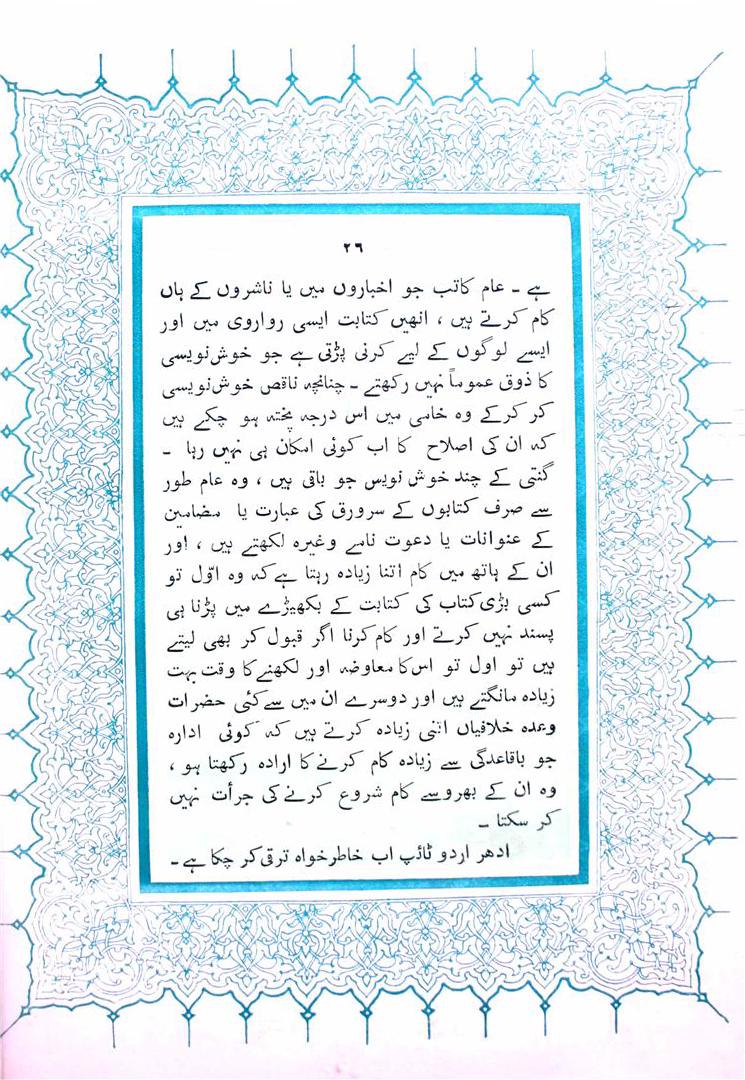 ۲٦
ہے ۔ عام کاتب جو اخباروں میں یا ناشروں کے ہاں
کام کرتے ہیں ، انھیں کتابت ایسی رواروی میں اور
ایسے لوگوں کے لیے کرنی پڑتی ہے جو خوش نویسی
کا ذوق عموماً نہیں رکھتے ۔ چنانچہ ناقص خوش نویسی
کر کرکے وہ خامی میں اس درجہ پختہ ہو چکے ہیں
کہ ان کی اصلاح کا اب کوئی امکان ہی نہیں رہا ۔
گنتی کے چند خوش نویس جو باقی ہیں ، وہ عام طور
سے صرف کتابوں کے سرورق کی عبارت یا مضامین
کے عنوانات یا دعوت نامے وغیرہ لکھتے ہیں ، اور
ان کے ہاتھ میں کام اتنا زیادہ رہتا ہے کہ وہ اوّل تو
کسی بڑی کتاب کی کتابت کے بکھیڑے میں پڑنا ہی
پسند نہیں کرتے اور کام کرنا اگر قبول کر بھی لیتے
ہیں تو اول تو اس کا معاوضہ اور لکھنے کا وقت بہت
زیادہ مانگتے ہیں اور دوسرے ان میں سے کئی حضرات
وعدہ خلافیاں اتنی زیادہ کرتے ہیں کہ کوئی ادارہ
جو باقاعدگی سے زیادہ کام کرنے کا ارادہ رکھتا ہو ،
وہ ان کے بھروسے کام شروع کرنے کی جرأت نہیں
کر سکتا ۔
ادھر اردو ٹائپ اب خاطر خواہ ترقی کر چکا ہے ۔